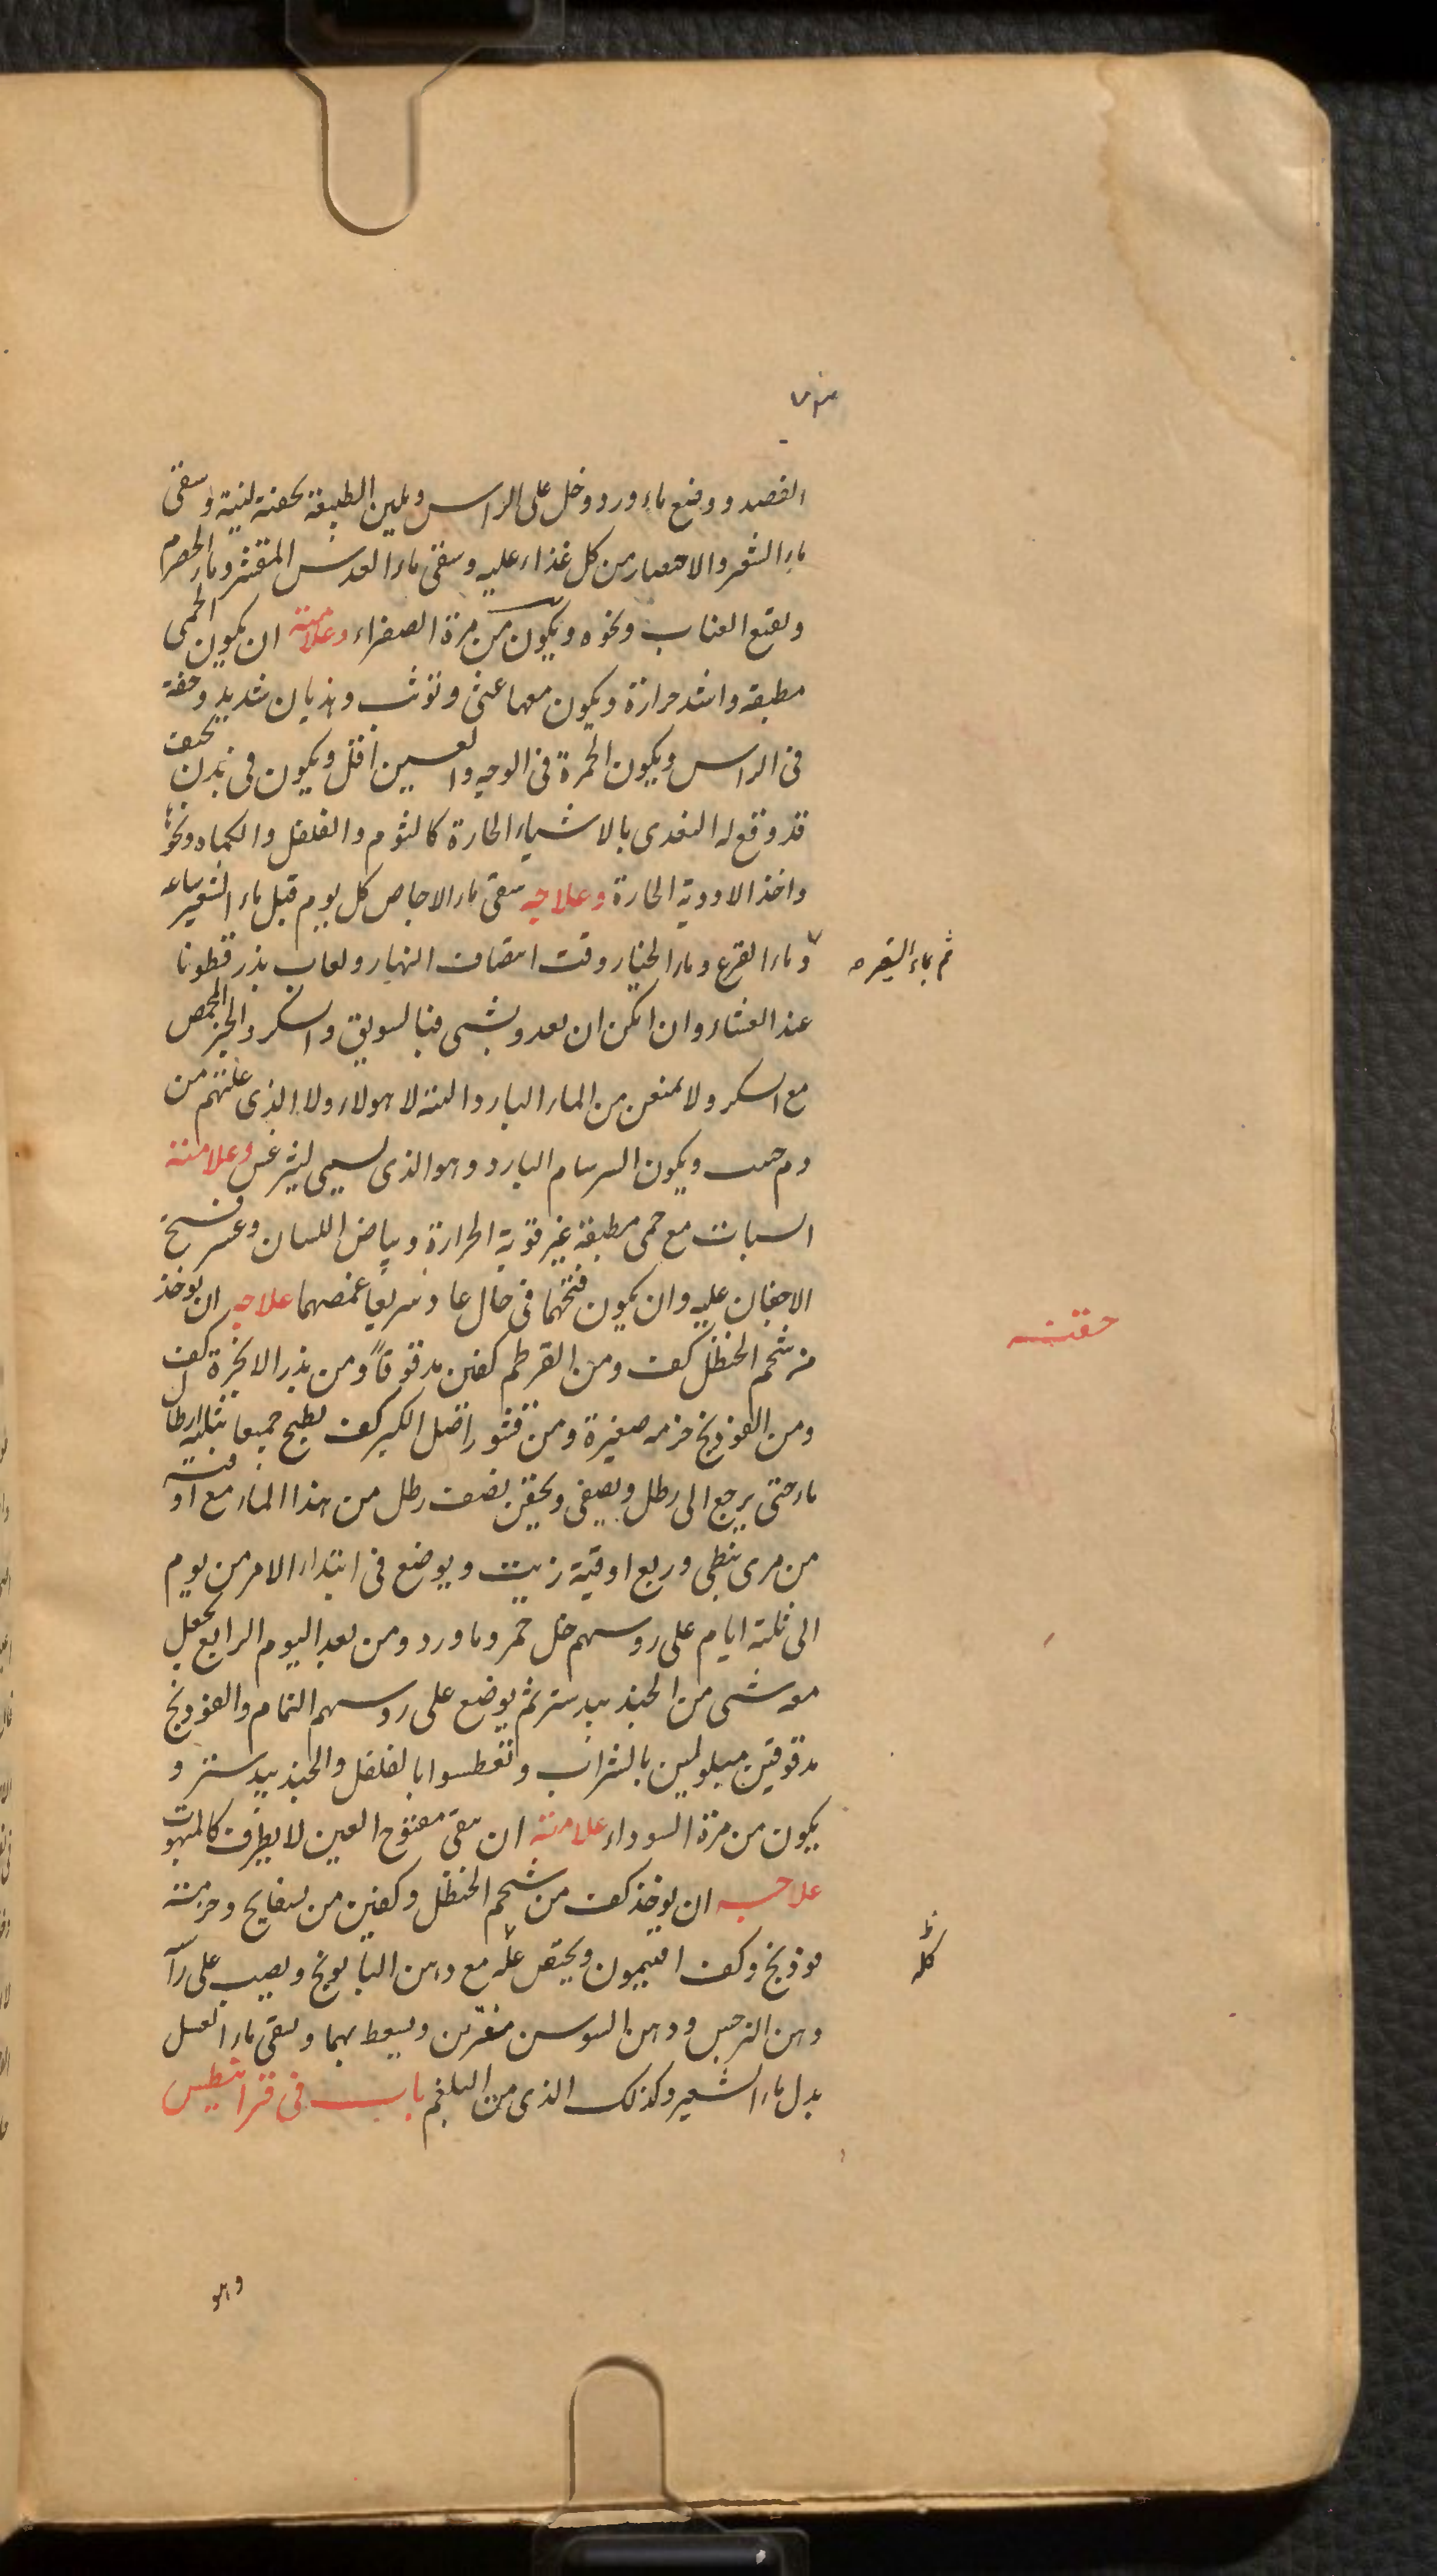 الفصد ووضع ماء ورد وخل على الراس ويلين الطبيعة بحقنة لينة وسقى
ماء الشعير والاقتصار من كل غذاء عليه وسقى ماء العدس المقشر وماء الحصرم
ونقيع العناب ونحوه ويكون من مرة الصفراء وعلامته ان يكون الحمى
مطبقة واشد حرارة ويكون معها غثى وتوثب وهذيان شديد وخفة
فى الراس ويكون الحمرة فى الوجه والعينين اقل ويكون فى بدن نحيف
قد وقع له التغدى بالاشياء الحارة كالثوم والفلفل والكماه ونحوها
واخذ الادوية الحارة وعلاجه سقى ماء الاجاص كل يوم قبل ماء الشعير بساعة
وماء القرع وماء الخيار وقت انتصاف النهار ولعاب بذر قطونا
ثم بماء الشعير
عند العشاء وان امكن ان يغدو بشى فبالسويق والسكر والخبز المحمص
مع السكر ولا يمنعن من الماء البارد البتة لا هولاء ولا الذى علتهم من
دم ويكون السرسام البارد وهو الذى يسمى ليثرغس وعلامته
السبات مع حمى مطبقة غير قوية الحرارة وبياض اللسان وعسر فتح
الاجفان عليه وان يكون فتحهما فى حال عاد سريعاً غمضهما علاجه ان يوخذ
حقنه
من شحم الحنظل كف ومن القرطم كفين مدقوقاً ومن بذر الانجرة كف
ومن الفوذنج حزمه صغيرة ومن قشور اصل الكبر كف يطبخ جميعا بثلثة ارطال
ماء حتى يرجع الى رطل ويصفى ويحقن بنصف رطل من هذا الماء مع اوقية
من مرى نبطى وربع اوقية زيت ويوضع فى ابتداء الامر من يوم
الى ثلثة ايام على روسهم خل خمر وماورد ومن بعد اليوم الرابع يجعل
معه شى من الجندبيدستر ثم يوضع على روسهم النمام والفوذنج
مدقوقين مبلولين بالشراب وتعطسوا بالفلفل والجندبيدستر و
يكون من مرة السوداء علامته ان يبقى مفتوح العين لا يطرف كالمبهوت
علاجه ان يوخذ كف من شحم الحنظل وكفين من بسفايج وحزمة
فوذنج وكف افتيمون ويحتقن مع دهن البابونج ويصب على راسه
كله
دهن النرجس ودهن السوسن مفترين ويسعط بهما ويسقى ماء العسل
بدل ماء الشعير وكذلك الذى من البلغم باب فى قرانيطس
وهو